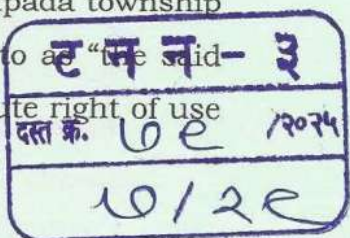 pada township
to as "the said
ट म न - ३
ute right of use
दस्त क्र. ७९ /२०२५
७/२९